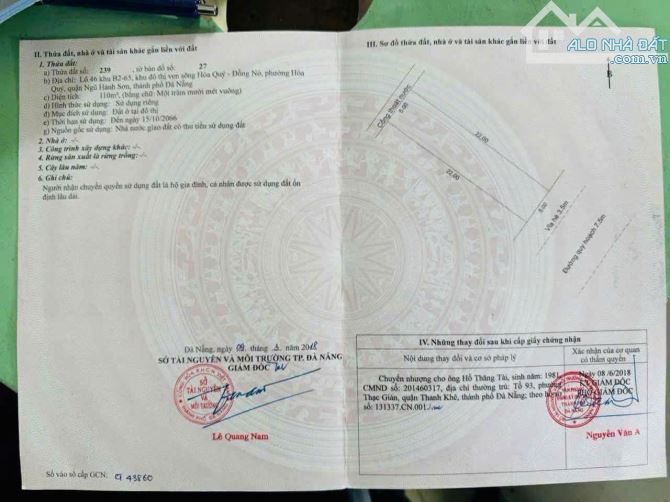 ALO NHÀ ĐẤT
.COM.VN
II. Thửa đất, nhà ở và tài sản khác gắn liền với đất
1. Thửa đất:
a) Thửa đất số: 239, tờ bản đồ số: 27
b) Địa chỉ: Lô 46 khu B2-65, khu đô thị ven sông Hòa Quý - Đồng Nò, phường Hòa
Quý, quận Ngũ Hành Sơn, thành phố Đà Nẵng
c) Diện tích: 110m², (bằng chữ: Một trăm mười mét vuông)
d) Hình thức sử dụng: Sử dụng riêng
đ) Mục đích sử dụng: Đất ở tại đô thị
e) Thời hạn sử dụng: Đến ngày 15/10/2066
g) Nguồn gốc sử dụng: Nhà nước giao đất có thu tiền sử dụng đất
2. Nhà ở: -/-
3. Công trình xây dựng khác: -/-
4. Rừng sản xuất là rừng trồng: -/-
5. Cây lâu năm: -/-
6. Ghi chú:
Người nhận chuyển quyền sử dụng đất là hộ gia đình, cá nhân được sử dụng đất ổn
định lâu dài.
Đà Nẵng, ngày 09 tháng 3 năm 2018
SỞ TÀI NGUYÊN VÀ MÔI TRƯỜNG TP. ĐÀ NẴNG
GIÁM ĐỐC
SỞ
TÀI NGUYÊN
VÀ
MÔI TRƯỜNG
Lê Quang Nam
Số vào sổ cấp GCN: CT 43860
III. Sơ đồ thửa đất, nhà ở và tài sản khác gắn liền với đất
B
Cống thoát nước
5.00
22.00
22.00
5.00
Vỉa hè 3.5m
Đường quy hoạch 7.5m
IV. Những thay đổi sau khi cấp giấy chứng nhận
Nội dung thay đổi và cơ sở pháp lý
Xác nhận của cơ quan
có thẩm quyền
Chuyển nhượng cho ông Hồ Thăng Tài, sinh năm: 1981,
CMND số: 201460317, địa chỉ thường trú: Tổ 93, phường
Thạc Gián, quận Thanh Khê, thành phố Đà Nẵng; theo hồ sơ
số: 131337.CN.001./.
Ngày 08/6/2018
KT. GIÁM ĐỐC
PHÓ GIÁM ĐỐC
Nguyễn Văn A